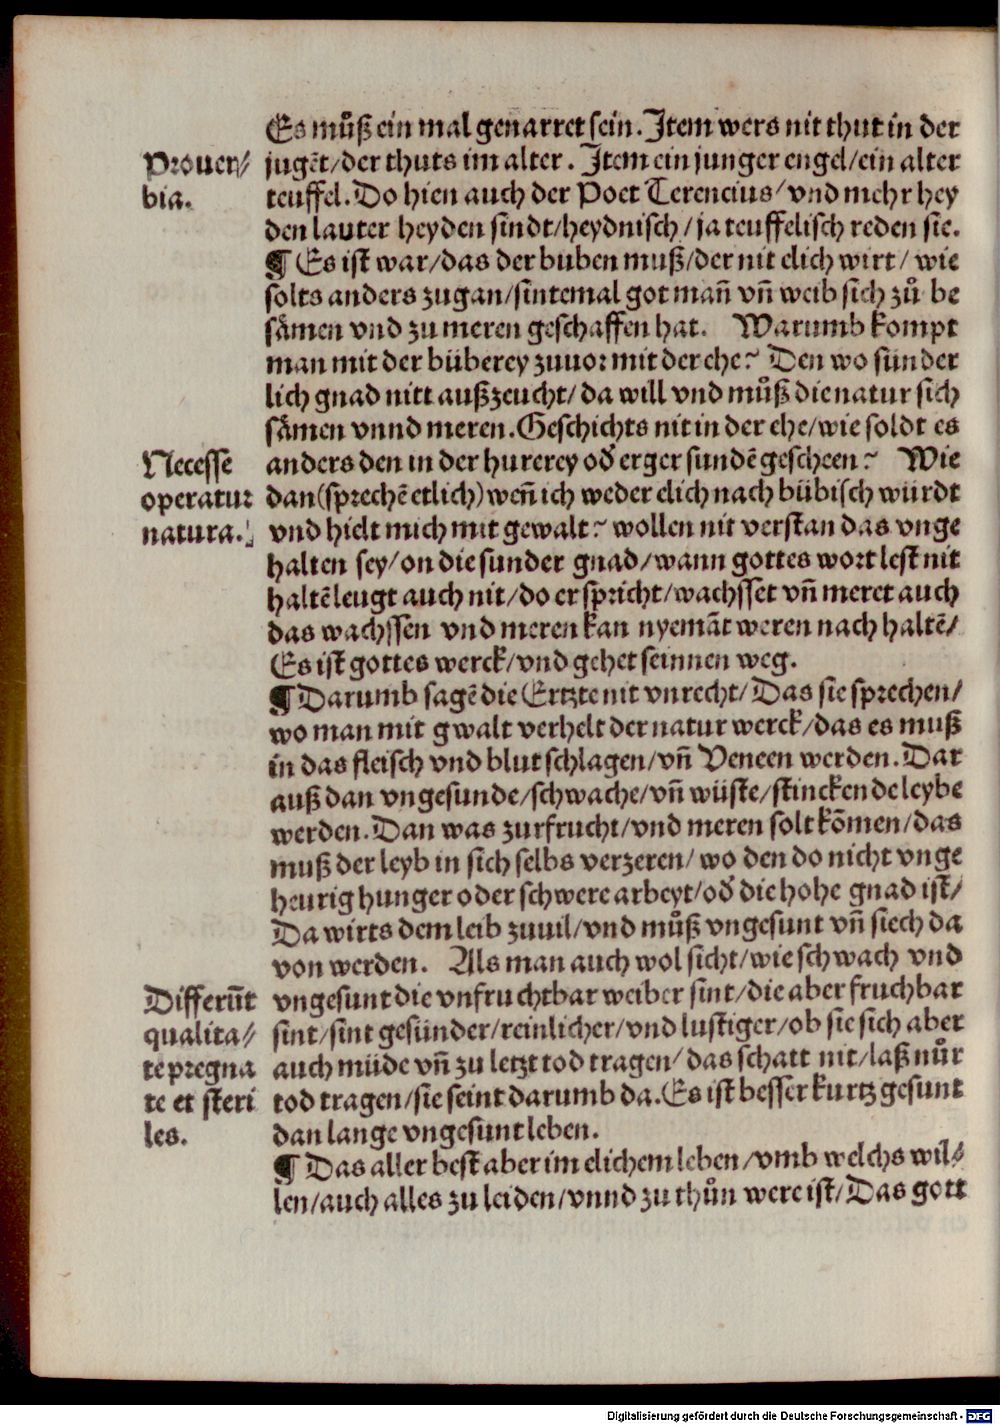 Es můß ein mal genarret sein. Item wers nit thut in der
Prouer/
bia.
jugēt/der thuts im alter. Item ein junger engel/ein alter
teuffel. Do hien auch der Poet Terencius/vnd mehr hey
den lauter heyden sindt/heydnisch/ja teuffelisch reden sie.
¶ Es ist war/das der buben muß/der nit elich wirt/ wie
solts anders zugan/sintemal got man̄ vn̄ weib sich zů be
sämen vnd zu meren geschaffen hat. Warumb kompt
man mit der büberey zuuor mit der ehe? Den wo sünder
lich gnad nitt außzeucht/ da will vnd můß die natur sich
sämen vnnd meren. Geschichts nit in der ehe/wie soldt es
Necesse
operatur
natura.
anders den in der hurerey od̕ erger sundē gescheen? Wie
dan(sprechē etlich)wen̄ ich weder elich nach bübisch würdt
vnd hielt mich mit gewalt? wollen nit verstan das vnge
halten sey/on die sunder gnad/wann gottes wort lest nit
haltē leugt auch nit/do er spricht/wachsset vn̄ meret auch
das wachssen vnd meren kan nyemāt weren nach haltē/
Es ist gottes werck/vnd gehet seinnen weg.
¶ Darumb sagē die Ertzte nit vnrecht/ Das sie sprechen/
wo man mit gwalt verhelt der natur werck/das es muß
in das fleisch vnd blut schlagen/vn̄ Veneen werden. Dar
auß dan vngesunde/schwache/vn̄ wüste/stinckende leybe
werden. Dan was zur frucht/vnd meren solt kōmen/das
muß der leyb in sich selbs verzeren/ wo den do nicht vnge
heurig hunger oder schwere arbeyt/od̕ die hohe gnad ist/
Da wirts dem leib zuuil/vnd můß vngesunt vn̄ siech da
von werden. Als man auch wol sicht/wie schwach vnd
Differūt
qualita/
te pregna
te et steri
les.
vngesunt die vnfruchtbar weiber sint/die aber fruchbar
sint/sint gesünder/reinlicher/vnd lustiger/ob sie sich aber
auch müde vn̄ zu letzt tod tragen/ das schatt nit/laß nůr
tod tragen/sie seint darumb da. Es ist besser kurtz gesunt
dan lange vngesunt leben.
¶ Das aller best aber im elichem leben/vmb welchs wil/
len/auch alles zu leiden/vnnd zu thůn were ist/Das gott
Digitalisierung gefördert durch die Deutsche Forschungsgemeinschaft - DFG